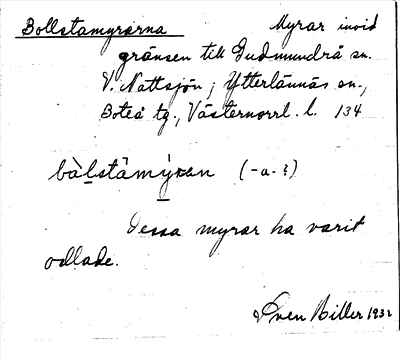 Bollstamyrarna Myrar invid
gränsen till Gudmundrå sn.
V. Nattsjön; Ytterlännäs sn.,
Boteå tg., Västernorrl. l. 134
bàlstàmýran (-a- ?)
Dessa myrar ha varit
odlade.
Sven Biller 1932